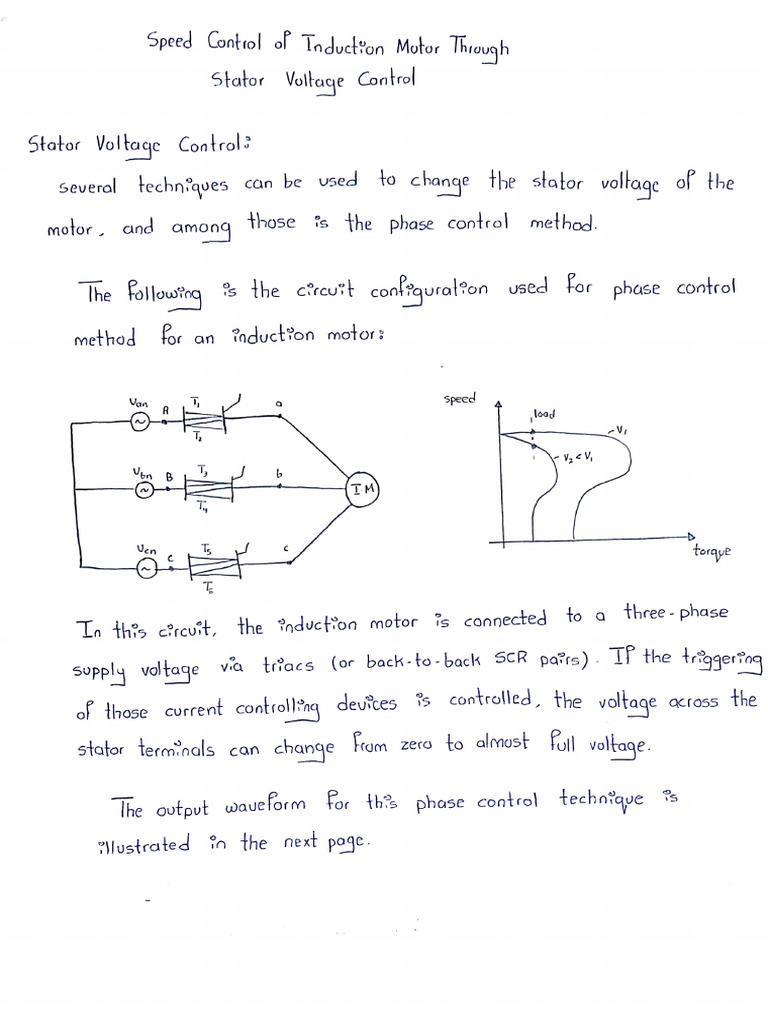 Speed Control of Induction Motor Through
Stator Voltage Control
Stator Voltage Control:
Several techniques can be used to change the stator voltage of the
motor, and among those is the phase control method.
The following is the circuit configuration used for phase control
method for an induction motor:
Van
A
T1
T2
a
Vbn
B
T3
T4
b
IM
Vcn
C
T5
T6
c
speed
load
V1
V2 < V1
torque
In this circuit, the induction motor is connected to a three-phase
supply voltage via triacs (or back-to-back SCR pairs). If the triggering
of those current controlling devices is controlled, the voltage across the
stator terminals can change from zero to almost full voltage.
The output waveform for this phase control technique is
illustrated in the next page.